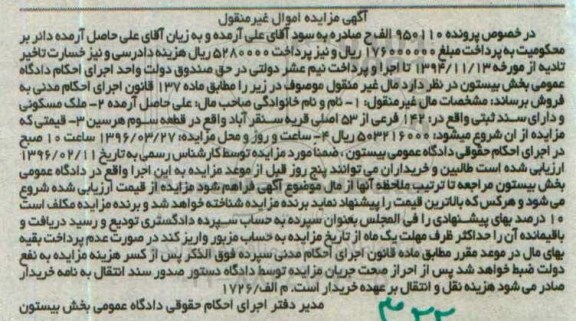 آگهی مزایده اموال غیرمنقول
در خصوص پرونده ۹۵۰۱۱۰ الف ح صادره به سود آقای علی آرمده و به زیان آقای علی حاصل آرمده دائر بر
محکومیت به پرداخت مبلغ ۱۷۶۰۰۰۰۰۰ ریال و نیز پرداخت ۵۲۸۰۰۰۰ ریال هزینه دادرسی و نیز خسارت تاخیر
تادیه از مورخه ۱۳۹۴/۱۱/۱۳ تا اجرا و پرداخت نیم عشر دولتی در حق صندوق دولت واحد اجرای احکام دادگاه
عمومی بخش بیستون در نظر دارد مال غیر منقول موصوف در زیر را مطابق ماده ۱۳۷ قانون اجرای احکام مدنی به
فروش برساند: مشخصات مال غیرمنقول: ۱- نام و نام خانوادگی صاحب مال: علی حاصل آرمده ۲- ملک مسکونی
و دارای سند ثبتی واقع در: ۱۴۲ فرعی از ۵۳ اصلی قریه سنقر آباد واقع در قطعه سوم هرسین ۳- قیمتی که
مزایده از آن شروع میشود: ۵۰۳۲۱۶۰۰۰ ریال ۴- ساعت و روز و محل مزایده: ۱۳۹۶/۰۳/۲۷ ساعت ۱۰ صبح
در اجرای احکام حقوقی دادگاه عمومی بیستون، ضمنا مورد مزایده توسط کارشناس رسمی به تاریخ ۱۳۹۶/۰۲/۱۱
ارزیابی شده است طالبین و خریداران می توانند پنج روز قبل از موعد مزایده به این اجرا واقع در دادگاه عمومی
بخش بیستون مراجعه تا ترتیب ملاحظه آنها از مال موضوع آگهی فراهم شود مزایده از قیمت ارزیابی شده شروع
می شود و هرکس که بالاترین قیمت را پیشنهاد نماید برنده مزایده شناخته خواهد شد و برنده مزایده مکلف است
۱۰ درصد بهای پیشنهادی را فی المجلس بعنوان سپرده به حساب سپرده دادگستری تودیع و رسید دریافت و
باقیمانده آن را حداکثر ظرف مهلت یک ماه از تاریخ مزایده به حساب مزبور واریز کند در صورت عدم پرداخت بقیه
بهای مال در موعد مقرر مطابق ماده قانون اجرای احکام مدنی سپرده فوق الذکر پس از کسر هزینه مزایده به نفع
دولت ضبط خواهد شد پس از احراز صحت جریان مزایده توسط دادگاه دستور صدور سند انتقال به نامه خریدار
صادر می شود هزینه نقل و انتقال بر عهده خریدار است. م الف/۱۷۲۶
مدیر دفتر اجرای احکام حقوقی دادگاه عمومی بخش بیستون
۴۲۲